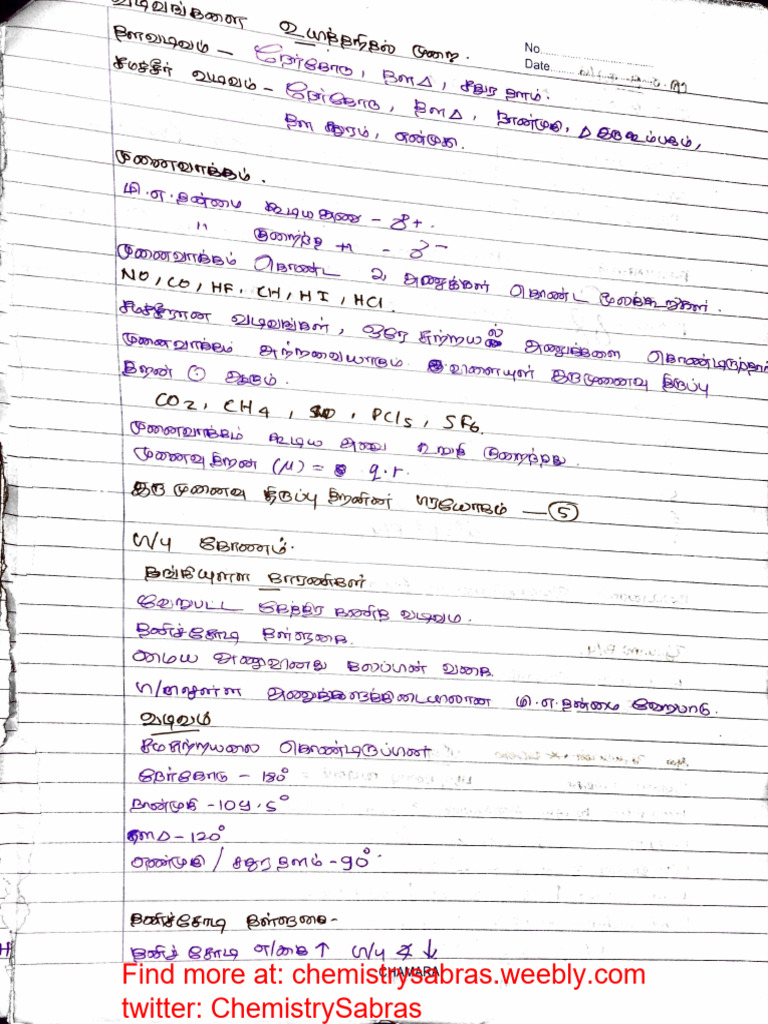 வடிவங்களை உய்த்தறிதல் முறை.
No.
Date
தளவடிவம் – நேர்கோடு, தள∆, சதுர தளம்.
சமச்சீர் வடிவம் – நேர்கோடு, தள∆, நான்முகி, ∆ இருகூம்பகம்,
தள சதுரம், எண்முகி.
முனைவாக்கம்.
மி.எ.தன்மை கூடியதவை – δ+.
" குறைந்த – δ–
முனைவாக்கம் கொண்ட 2 அணுக்கள் கொண்ட மூலக்கூறுகள்.
NO, CO, HF, CH, HI, HCl.
சமச்சீரான வடிவங்கள், ஒரே சுற்றயல் அணுக்களை கொண்டிருந்தால்
முனைவாக்கம் அற்றவையாகும். விளையுள் இருமுனைவு திருப்பு
திறன் ⊙ ஆகும்.
CO2, CH4, PCl5, SF6.
முனைவாக்கம் கூடிய அணு உறுதி குறைந்தது.
முனைவு திறன் (μ) = q.r.
இரு முனைவு திருப்பு திறனின் பிரயோகம் — ⑤
பி/பு கோணம்.
தங்கியுள்ள காரணிகள்
வேறுபட்ட கேத்திர கணித வடிவம்.
தனிச்சோடி தள்ளுகை.
மைய அணுவினது கலப்பின் வகை.
பி/பிலுள்ள அணுக்களுக்கிடையிலான மி.எ.தன்மை வேறுபாடு.
வடிவம்
சமசுற்றயலை கொண்டிருப்பின்
நேர்கோடு – 180°
நான்முகி – 109.5°
தள∆ – 120°
எண்முகி / சதுர தளம் – 90°
தனிச்சோடி தள்ளுகை –
தனிச் சோடி எ/கை ↑ பி/பு ∡ ↓
CHAMARA
Find more at: chemistrysabras.weebly.com
twitter: ChemistrySabras